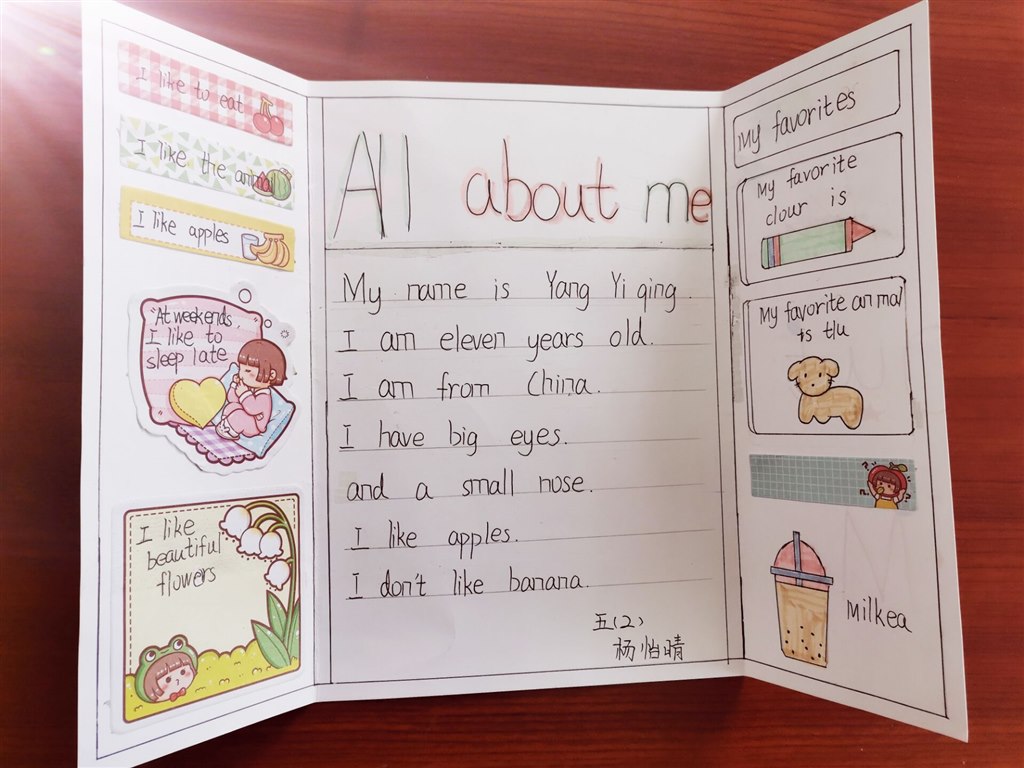 I like to eat
I like the animal
I like apples
At weekends
I like to
sleep late
I like
beautiful
flowers
All about me
My name is Yang Yi qing.
I am eleven years old.
I am from China.
I have big eyes.
and a small nose.
I like apples.
I don't like banana.
五(2)
杨怡晴
My favorites
My favorite
clour is
My favorite animal
is
Milkea